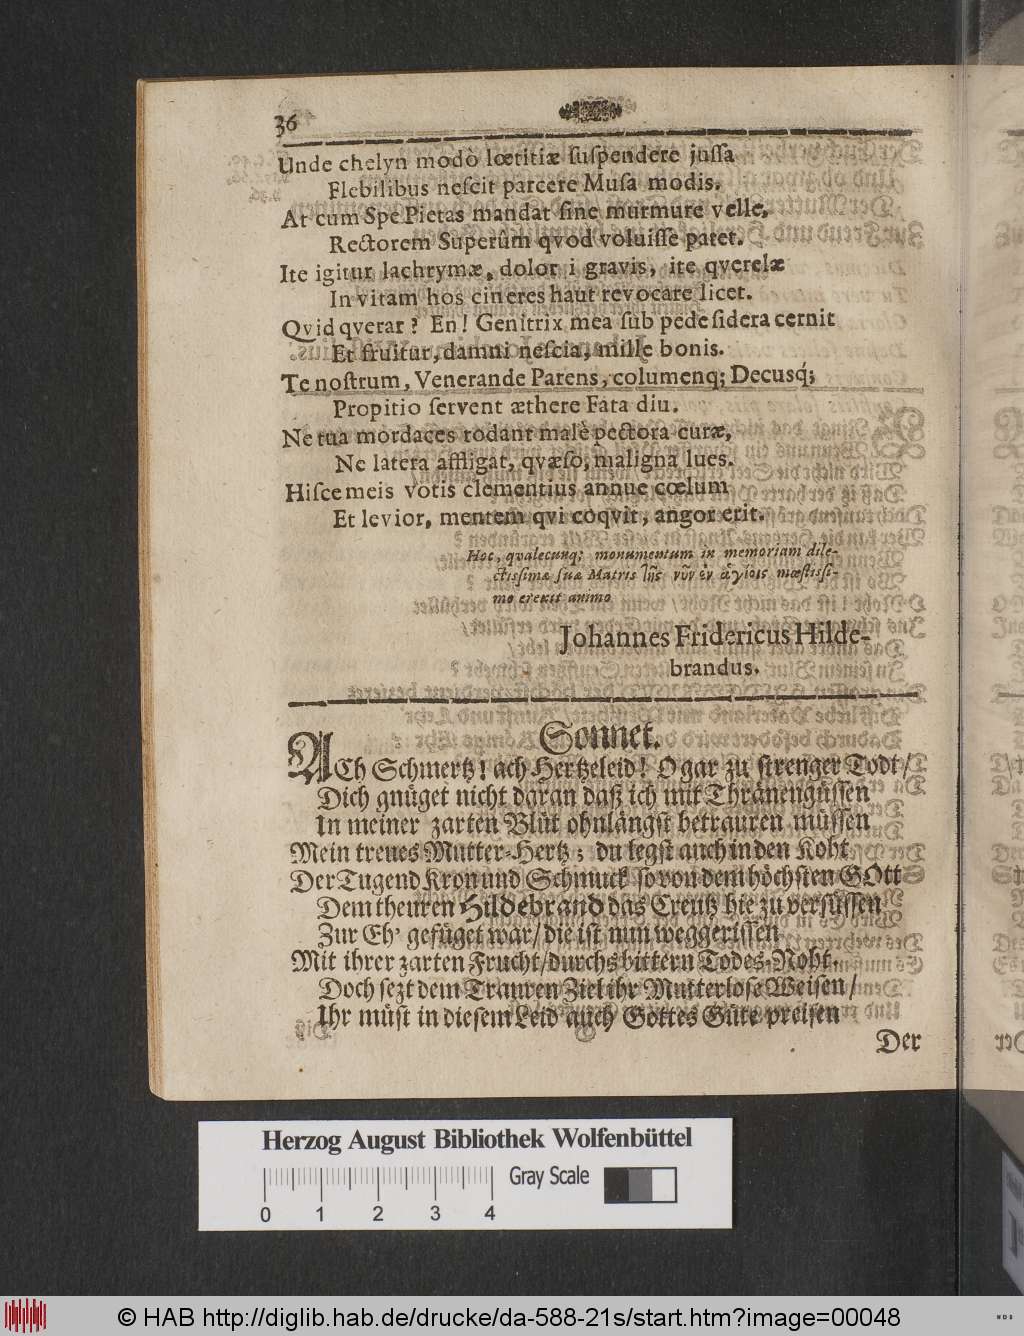 36
Unde chelyn modò lœtitiæ ſuſpendere juſſa
Flebilibus neſcit parcere Muſa modis.
At cum Spe Pietas mandat ſine murmure velle,
Rectorem Superûm qvod voluiſſe patet.
Ite igitur lachrymæ, dolor i gravis, ite qverelæ
In vitam hos cineres haut revocare licet.
Qvid qverar? En! Genitrix mea ſub pede ſidera cernit
Et fruitur, damni neſcia, mille bonis.
Te noſtrum, Venerande Parens, columenq; Decusq́;
Propitio ſervent æthere Fata diu.
Ne tua mordaces rodant malè pectora curæ,
Ne latera affligat, qvæſo, maligna lues.
Hiſce meis votis clementius annue cœlum
Et levior, mentem qvi coqvit, angor erit.
Hoc, qvalecunq; monumentum in memoriam dile-
ctisſimæ ſuæ Matris τῆς νῦν ἐν ἁγίοις mœſtisſi-
mo erexit animo
Johannes Fridericus Hilde-
brandus.
Sonnet.
ACh Schmertz! ach Hertzeleid! O gar zu ſtrenger Todt/
Dich gnüget nicht daran daß ich mit Thränengüſſen
In meiner zarten Blüt ohnlängſt betrauren müſſen
Mein treues Mutter-Hertz; du legſt auch in den Koht
Der Tugend Kron und Schmuck ſo von dem höchſten GOtt
Dem theuren Hildebrand das Creutz hie zu verſüſſen
Zur Eh' gefüget war/ die iſt nun weggeriſſen
Mit ihrer zarten Frucht/ durchs bittern Todes-Noht.
Doch ſezt dem Trauren Ziel ihr Mutterloſe Weiſen/
Ihr müſt in dieſem Leid auch Gottes Güte preiſen
Der
Herzog August Bibliothek Wolfenbüttel
Gray Scale
0 1 2 3 4
© HAB http://diglib.hab.de/drucke/da-588-21s/start.htm?image=00048